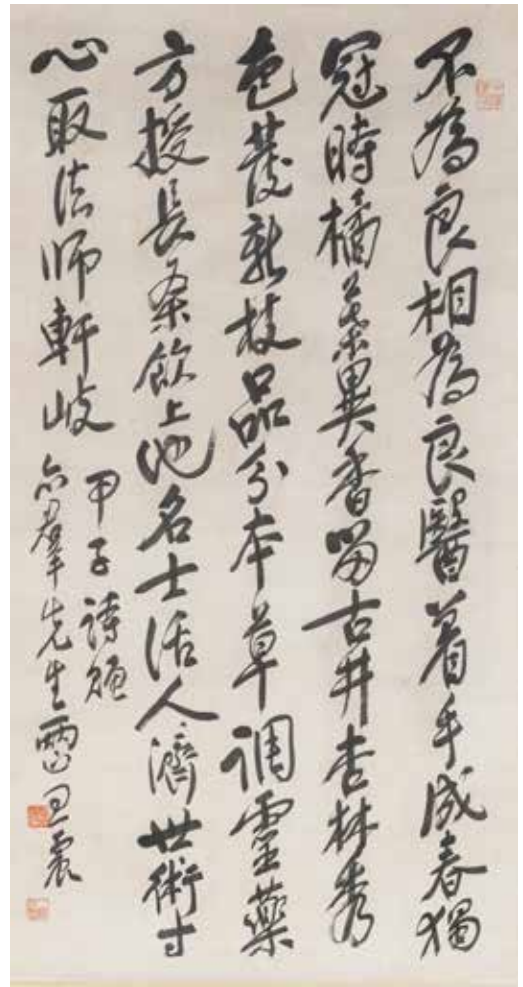 不為良相為良醫着手成春獨
冠時橘葉異香留古井杏林秀
色茂新枝品分本草調靈藥
方授長桑飲上池名士活人濟世術寸
心取法師軒岐
甲子詩頌
羣先生 王震